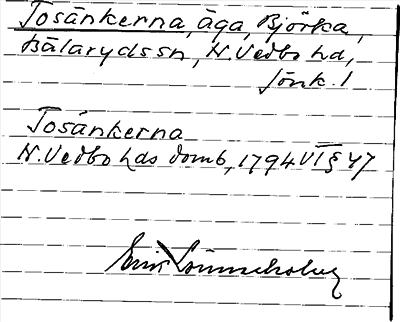 Tosänkerna, äga, Björka,
Bälaryds sn, N. Vedbo hd,
Jönk. l
Tosänkerna
N. Vedbo hds domb, 1794 VI § 47